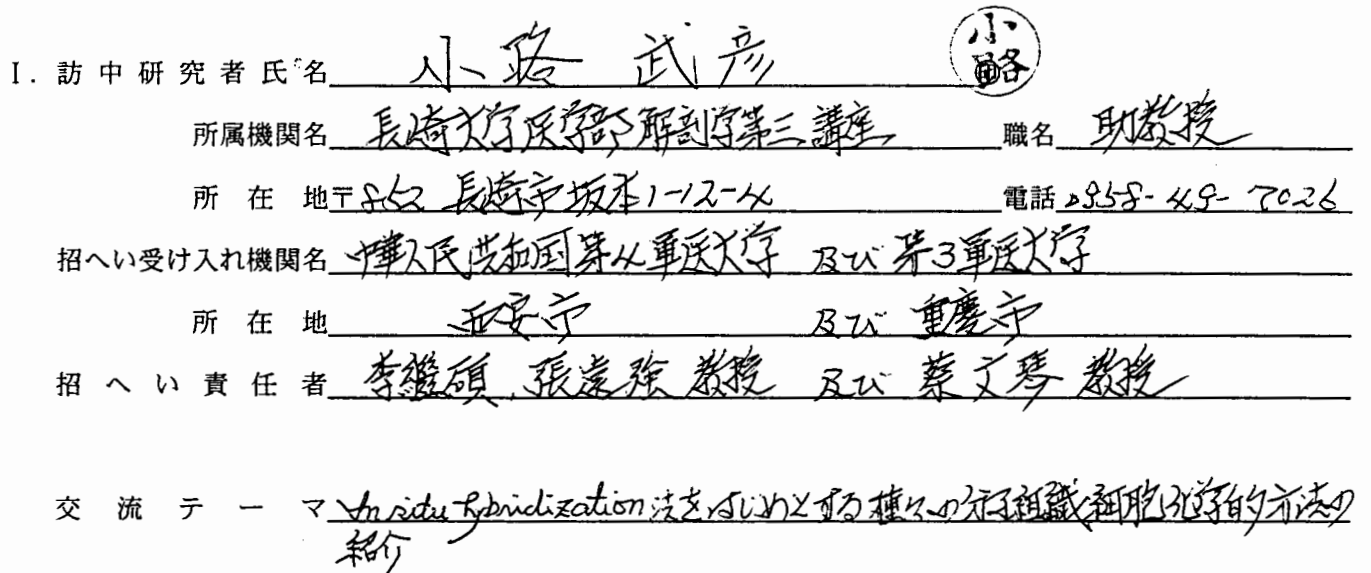 I. 訪中研究者氏名 小路 武彦 小路
所属機関名 長崎大学医学部解剖学第三講座 職名 助教授
所在地 〒852 長崎市坂本1-12-4 電話 0958-49-7026
招へい受け入れ機関名 中華人民共和国第4軍医大学 及び 第3軍医大学
所在地 西安市 及び 重慶市
招へい責任者 李継碩, 張遠強 教授 及び 蔡文琴 教授
交流テーマ In situ hybridization法をはじめとする種々の分子組織細胞化学的方法の
紹介